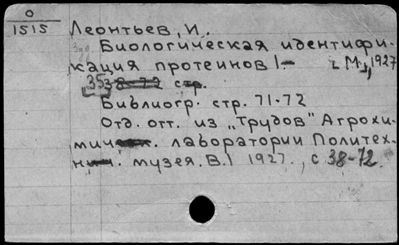 O
1515
Леонтьев, И.
Биологическая идентифи-
кация протеинов I.- [М., 1927
[35] 38-72 стр.
Библиогр. стр. 71-72
Отд. отт. из „Трудов" Агрохи-
мич. лаборатории Политех-
нич. музея. В. I 1927. с 38-72.